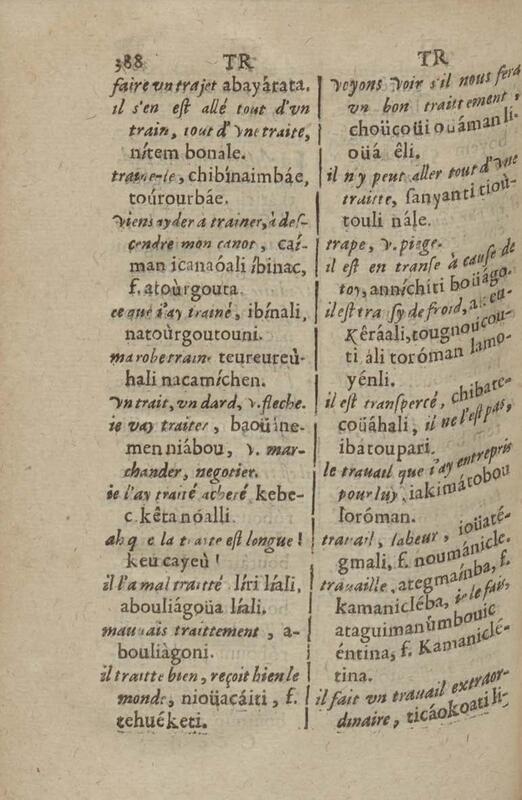 388 TR
faire vn trajet abayárata.
il s'en est allé tout d'vn
train, tout d'vne traite,
nítem bonale.
traine-le, chibínaimbáe,
toúrourbáe.
Viens ayder a trainer, à des-
cendre mon canot, caí-
man icanaóali íbinac,
f. atoùrgouta.
ce que i'ay trainé, ibínali,
natoùrgoutouni.
ma robe traine teureureù-
hali nacamíchen.
Vn trait, vn dard, v. fleche.
ie vay traiter, baoüine-
men niábou, v. mar-
chander, negotier.
ie l'ay traité acheté kebe-
c kêta nóalli.
ah que la traite est longue!
keu cayeù!
il l'a mal traitté líri líali,
abouliágoüa líali.
mauuais traittement, a-
bouliàgoni.
il traitte bien, reçoit bien le
monde, nioüacáiti, f.
tehuéketi.
TR
Voyons voir s'il nous fera
vn bon traittement,
choücoüi oüáman li-
oüá êli.
il n'y peut aller tout d'vne
traitte, sanyanti tioù-
touli nále.
trape, v. piege.
il est en transe à cause de
toy, anníchiti boüágo.
il est transy de froid,
Kêráali, tougnoucou-
ti áli toróman lamo-
yénli.
il est transpercé, chibate-
çoüáhali, il ne l'est pas,
ibátoupari.
le trauail que i'ay entrepris
pour luy, iakimátobou
loróman.
trauail, labeur, ioüaté-
gmali, f. noumánicle.
trauaille, ategmaínba, f.
kamanicléba, ie le fais,
ataguimanùmbouic
éntina, f. Kamaniclé-
tina.
il fait vn trauail extraor-
dinaire, ticáokoati li-